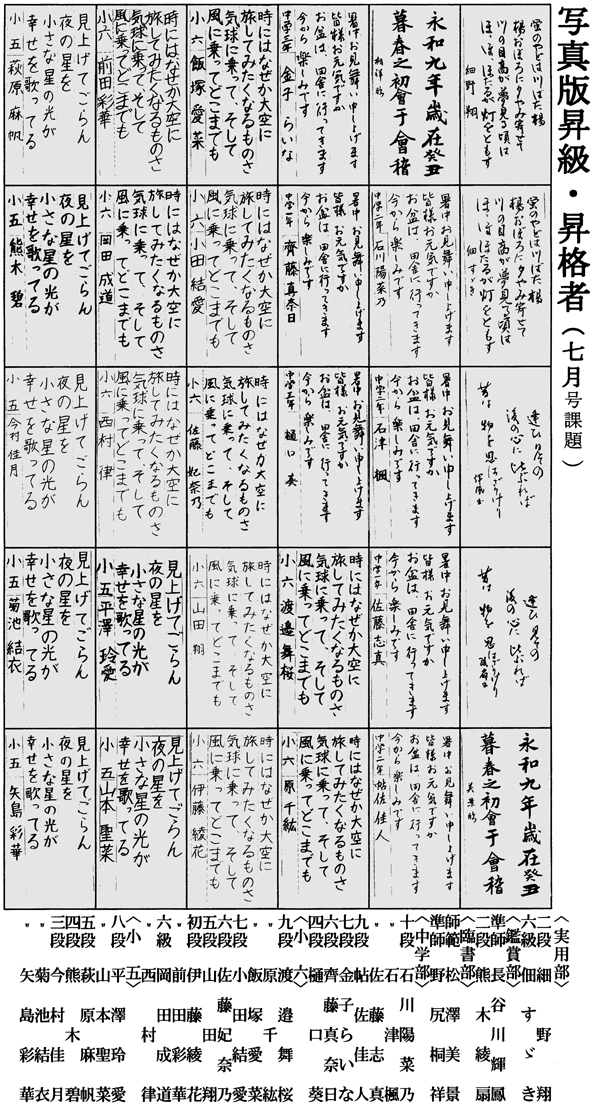 写真版昇級・昇格者（七月号課題）
蛍のやどは川ばた楊
楊おぼろに夕やみ寄せて
川の目高が夢見る頃は
ほ、ほ、ほたるが灯をともす
細野 翔
蛍のやどは川ばた楊
楊おぼろに夕やみ寄せて
川の目高が夢見る頃は
ほ、ほ、ほたるが灯をともす
佃すゞき
逢ひ見ての
後の心に比ぶれば
昔は物を思はざりけり
逢ひ見ての
後の心に比ぶれば
昔は物を思はざりけり
永和九年歳在癸丑
暮春之初會于會稽
美景臨
永和九年歳在癸丑
暮春之初會于會稽
桐祥臨
暑中お見舞い申し上げます
皆様お元気ですか
お盆は、田舎に行ってきます
今から楽しみです
中学二年 石川陽菜乃
暑中お見舞い申し上げます
皆様お元気ですか
お盆は、田舎に行ってきます
今から楽しみです
中学二年 石津 楓
暑中お見舞い申し上げます
皆様お元気ですか
お盆は、田舎に行ってきます
今から楽しみです
中学二年 佐藤志真
暑中お見舞い申し上げます
皆様お元気ですか
お盆は、田舎に行ってきます
今から楽しみです
中学二年 帖佐佳人
暑中お見舞い申し上げます
皆様お元気ですか
お盆は、田舎に行ってきます
今から楽しみです
中学二年 金子 らいな
暑中お見舞い申し上げます
皆様お元気ですか
お盆は、田舎に行ってきます
今から楽しみです
中学一年 齊藤真奈日
暑中お見舞い申し上げます
皆様お元気ですか
お盆は、田舎に行ってきます
今から楽しみです
樋口 葵
時にはなぜか大空に
旅してみたくなるものさ
気球に乗って、そして
風に乗ってどこまでも
小六 渡邉舞桜
時にはなぜか大空に
旅してみたくなるものさ
気球に乗って、そして
風に乗ってどこまでも
小六 原千紘
時にはなぜか大空に
旅してみたくなるものさ
気球に乗って、そして
風に乗ってどこまでも
小六 飯塚愛菜
時にはなぜか大空に
旅してみたくなるものさ
気球に乗って、そして
風に乗ってどこまでも
小六 小田結愛
時にはなぜか大空に
旅してみたくなるものさ
気球に乗って、そして
風に乗ってどこまでも
小六 佐藤妃奈乃
時にはなぜか大空に
旅してみたくなるものさ
気球に乗って、そして
風に乗ってどこまでも
小六 山田 翔
時にはなぜか大空に
旅してみたくなるものさ
気球に乗って、そして
風に乗ってどこまでも
小六 伊藤綾花
時にはなぜか大空に
旅してみたくなるものさ
気球に乗って、そして
風に乗ってどこまでも
小六 前田彩華
時にはなぜか大空に
旅してみたくなるものさ
気球に乗って、そして
風に乗ってどこまでも
小六 岡田成道
時にはなぜか大空に
旅してみたくなるものさ
気球に乗って、そして
風に乗ってどこまでも
小六 西村 律
見上げてごらん
夜の星を
小さな星の光が
幸せを歌ってる
小五 平澤玲愛
見上げてごらん
夜の星を
小さな星の光が
幸せを歌ってる
小五 山本聖菜
見上げてごらん
夜の星を
小さな星の光が
幸せを歌ってる
小五 萩原麻帆
見上げてごらん
夜の星を
小さな星の光が
幸せを歌ってる
小五 熊木 碧
見上げてごらん
夜の星を
小さな星の光が
幸せを歌ってる
小五 今村佳月
見上げてごらん
夜の星を
小さな星の光が
幸せを歌ってる
小五 菊池結衣
見上げてごらん
夜の星を
小さな星の光が
幸せを歌ってる
小五 矢島彩華
〈実用部〉
二段 細野 翔
六級 佃 すゞき
〈鑑賞部〉
準師 長谷川輝鳳
二段 熊木綾扇
〈臨書部〉
師範 松澤美景
準師 野尻桐祥
〈中学部〉
十段 石川陽菜乃
〃 石津 楓
〃 佐藤志真
九段 帖佐佳人
七段 金子らいな
六段 齊藤真奈日
四段 樋口 葵
〈小 六〉
九段 渡邉舞桜
〃 原 千紘
〃 飯塚愛菜
七段 小田結愛
六段 佐藤妃奈乃
五段 山田 翔
初段 伊藤綾花
〃 前田彩華
六級 岡田成道
〃 西村 律
〈小 五〉
八段 平澤玲愛
〃 山本聖菜
五段 萩原麻帆
四段 熊木 碧
三段 今村佳月
〃 菊池結衣
〃 矢島彩華